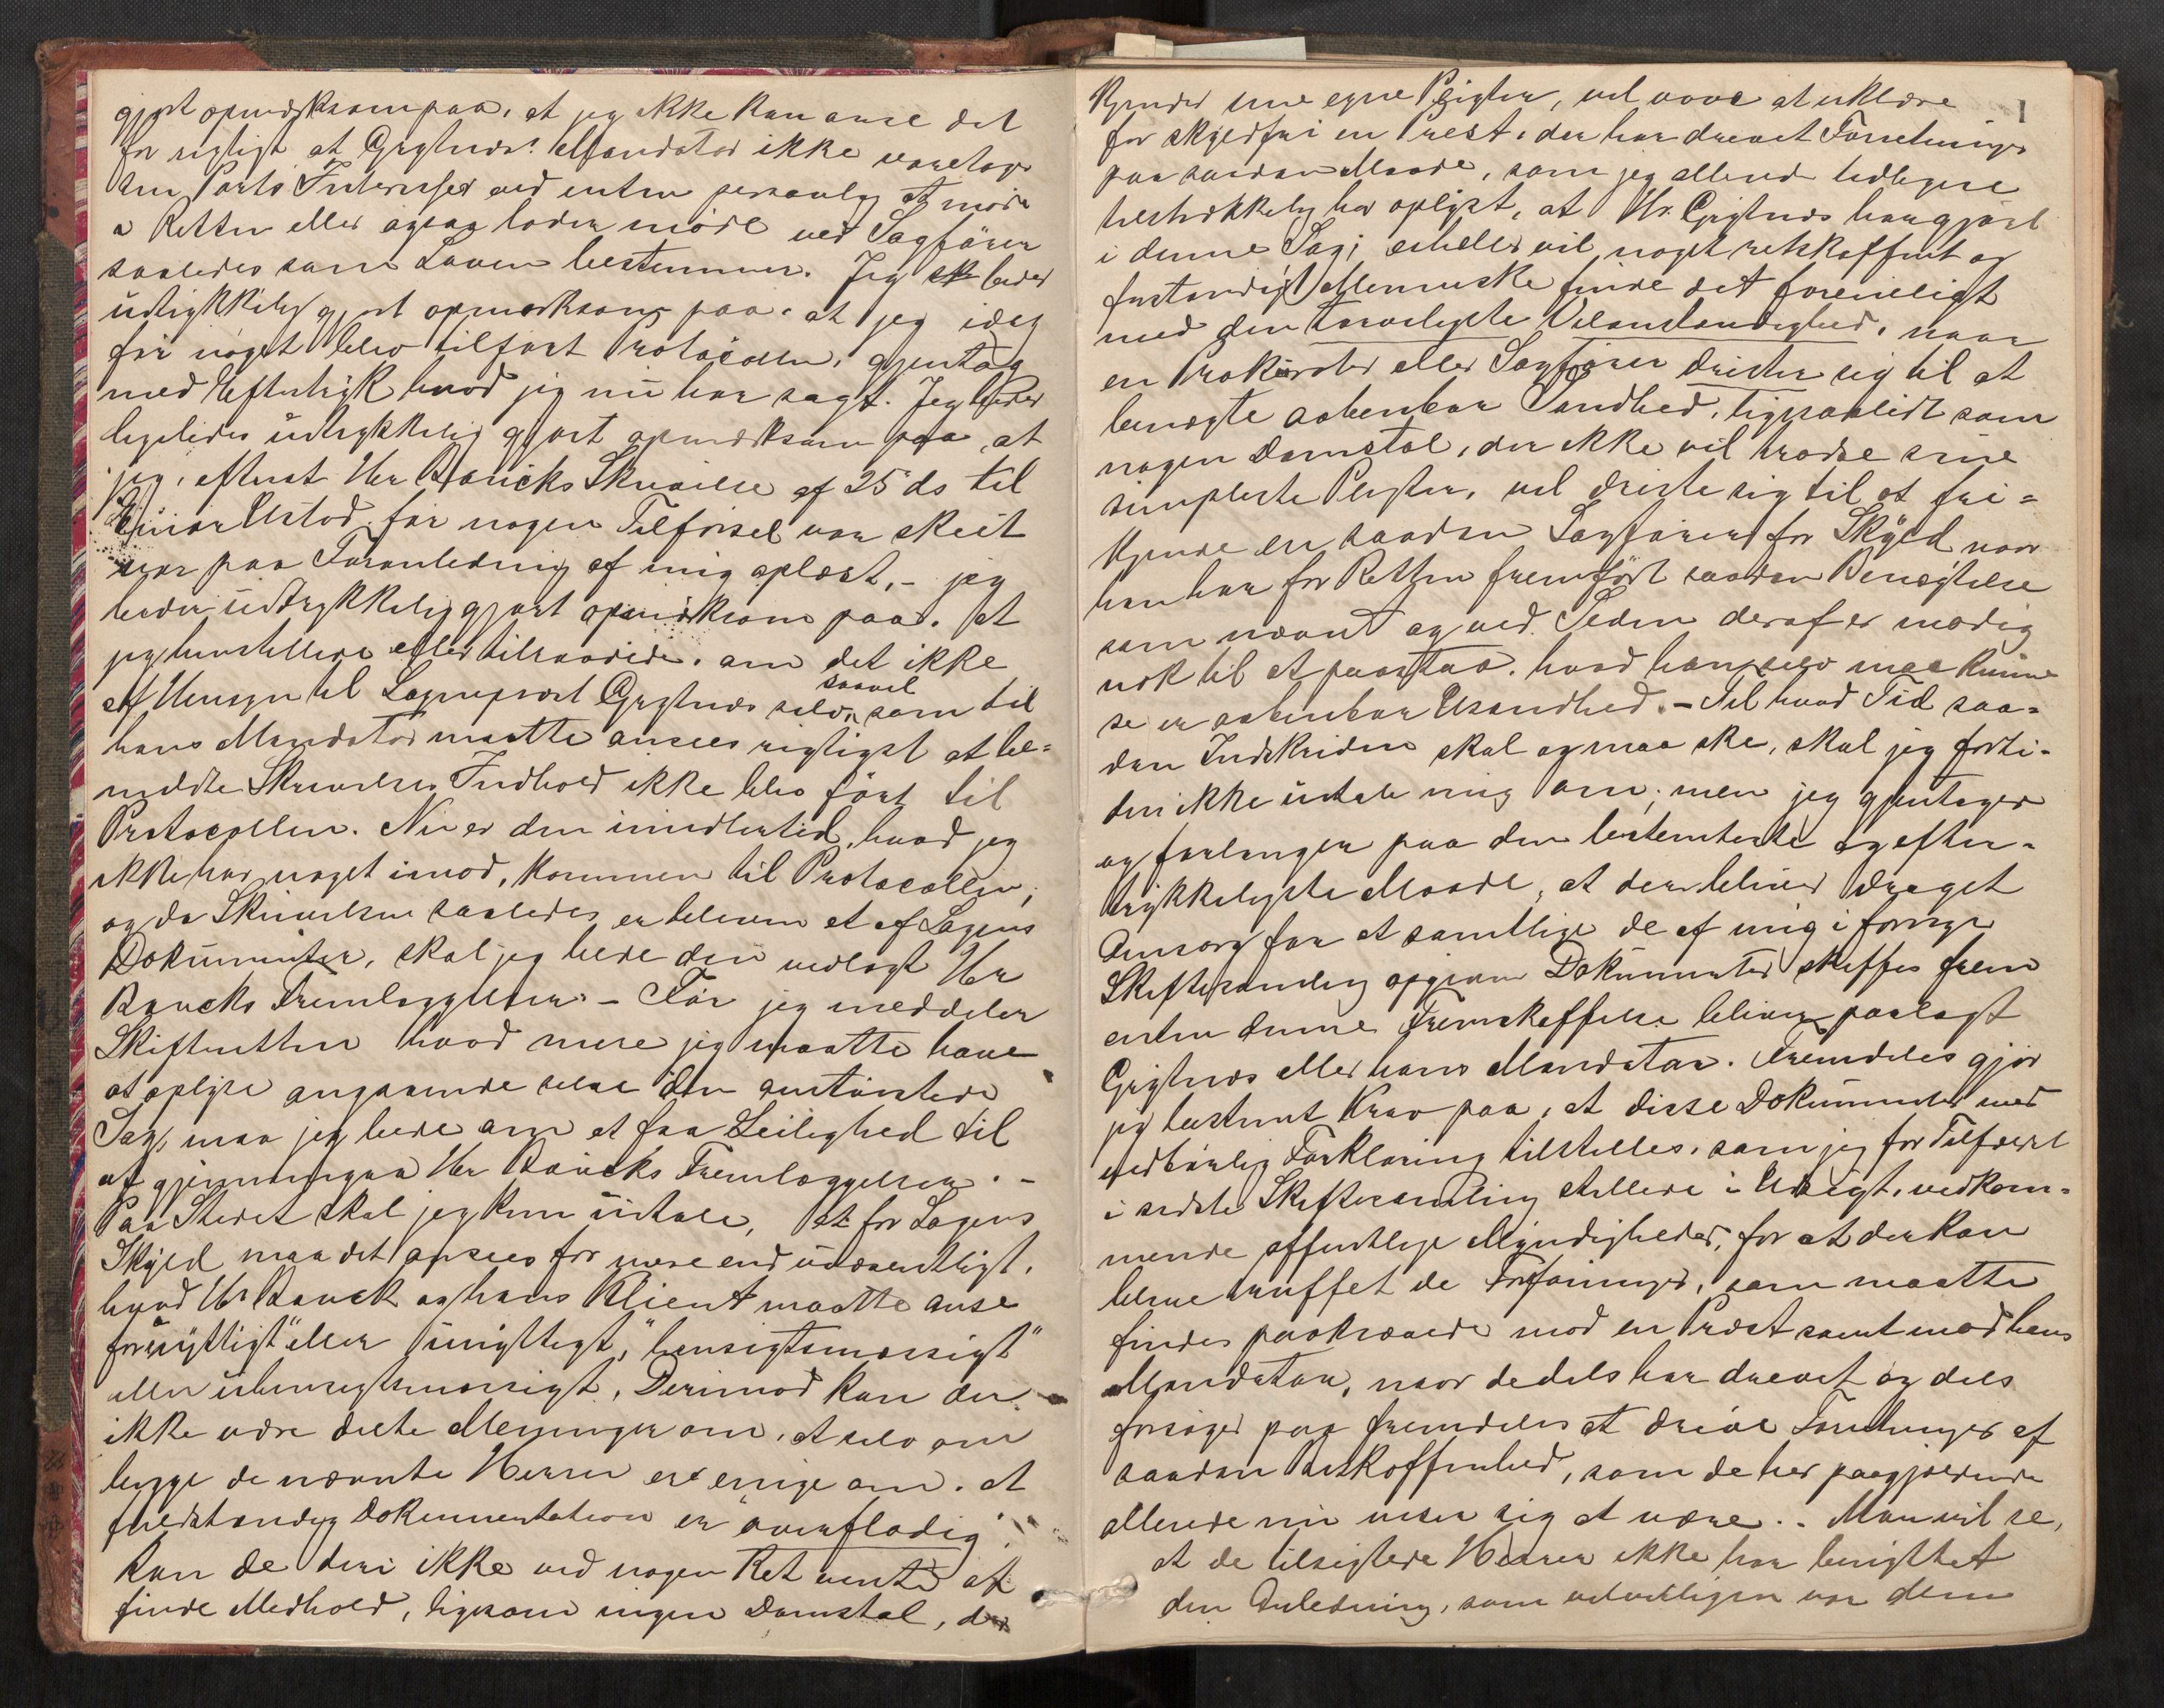 gjort opmærksom paa, at jeg ikke kan anse det
for rigtigt at Gigtnæs's Mandatar ikke varetager
sin Parts Interesser ved enten personlig at møde
i Retten eller ogsaa lader møde ved Sagfører
saaledes som Loven bestemmer. Jeg beder
udtrykkelig gjort opmærksom paa, at jeg idag
før noget blev tilført Protocollen, gjentog
med Eftertryk hvad jeg nu har sagt. Jeg beder
ligeledes udtrykkelig gjort opmærksom paa at
jeg, efterat Hr Baucks Skrivelse af 25 ds til
Einar Ustad før nogen Tilførsel var skeet
var paa Foranledning af mig oplæst, - jeg
beder udtrykkelig gjort opmærksom paa, at
jeg henstillede eller tilraadede, om det ikke
af Hensyn til Sogneprest Gigtnæs selv saavel som til
hans Mandatar maatte ansees rigtigst at be=
meldte Skrivelses Indhold ikke blev ført til
Protocollen. Nu er den imidlertid, hvad jeg
ikke har noget imod, kommen til Protocollen,
og da Skrivelsen saaledes er bleven et af Sagens
Dokumenter, skal jeg bede den vedlagt Hr
Baucks Fremlæggelser. - Før jeg meddeler
Skifteretten hvad mere jeg maatte have
at oplyse angaaende selve den
Sag, maa jeg bede om at faa Leilighed til
at gjennemgaa Hr Baucks Fremlæggelser. -
Paa Stedet skal jeg kun udtale, at for Sagens
Skyld maa det ansees for mere end uvæsentligt,
hvad Hr Bauck og hans Klient maatte anse
for "nyttigt" eller unyttigt, "hensigtsmæssigt"
eller uhensigtsmæssigt, Derimod kan der
ikke være delte Meninger om, at selv om
begge de nævnte Herrer er enige om, at
fuldstændig Dokumentation er "overflødig",
kan de deri ikke ved nogen Ret vente at
finde Medhold, ligesom ingen Domstol, der
kjender sine egne Pligter, vil vove at erklære
for skyldfri en Prest, der har drevet Forretninger
paa saadan Maade, som jeg allerede tidligere
tilstrækkelig har oplyst, at Hr. Gigtnæs har gjort
i denne Sag; eiheller vil noget retskaffent og
forstandigt Menneske finde det foreneligt
med den tarveligste Velanstændighed, naar
en Prokurator eller Sagfører drister sig til at
benægte aabenbar Sandhed, ligesaalidt som
nogen Domstol, der ikke vil trodse sine
simpleste Pligter, vil driste sig til at fri=
kjende en saadan Sagfører for Skyld naar
han har for Retten fremført saadan Benægtelse
som nævnt og ved Siden deraf er modig
nok til at paastaa, hvad han selv maa kunne
se er aabenbar Usandhed. - Til hvad Tid saa=
dan Indskriden skal og maa ske, skal jeg forti-
den ikke udtale mig om; men jeg gjentager
og forlanger paa den bestemteste og efter-
trykkeligste Maade, at der bliver draget
Omsorg for at samtlige de af mig i forrige
Skiftesamling opgivne Dokumenter skaffes frem
enten denne Fremskaffelse bliver paalagt
Gigtnæs eller hans Mandatar. Fremdeles gjør
jeg bestemt Krav paa, at disse Dokumenter med
vedbørlig Forklaring tilstilles, som jeg før Tilførsel
i sidste Skiftesamling stillede i Udsigt, vedkom=
mende offentlige Myndigheder, for at der kan
blive truffet de Forføininger, som maatte
findes paakrævede mod en Prest samt mod hans
Mandatar, naar de dels har drevet og dels
forsøger paa fremdeles at drive Forretninger af
saadan Beskaffenhed, som de her paagjældende
allerede nu viser sig at være. . Man vil se,
at de tilsigtede Herrer ikke har benyttet
den Anledning, som velvilligen var dem